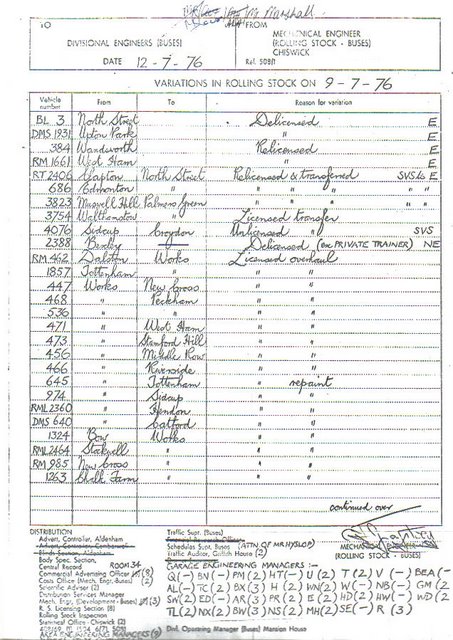 Mr Marshall
TO
FROM
DIVISIONAL ENGINEERS (BUSES)
MECHANICAL ENGINEER
(ROLLING STOCK - BUSES)
CHISWICK
DATE 12-7-76
Ref. 508/1
VARIATIONS IN ROLLING STOCK ON 9-7-76
Vehicle number From To Reason for variation
BL 3 North Street Delicensed E
DMS 1931 Upton Park " E
384 Wandsworth Relicensed E
RM 1661 West Ham " E
RT 2406 Clapton North Street Relicensed & transferred SVS to E
686 Edmonton " " " " " "
3823 Muswell Hill Palmers Green " " "
3754 Walthamstow " Licensed transfer
4076 Sidcup Croydon Unlicensed " SVS
2388 Bexley Delicensed (ex PRIVATE TRAINER) NE
RM 462 Dalston Works Licensed overhaul
1857 Tottenham " " "
447 Works New Cross " "
468 " Peckham " "
536 " " " "
471 " West Ham " "
473 " Stamford Hill " "
456 " Middle Row " "
466 " Riverside " "
645 " Tottenham " repaint
974 " Sidcup " "
RML 2360 " Hendon " "
DMS 640 " Catford " "
1324 Bow Works " "
RML 2464 Stockwell " " "
RM 985 New Cross " " "
1263 Chalk Farm " " "
continued over
MECHANICAL ENGINEER
(ROLLING STOCK - BUSES)
DISTRIBUTION
Advert. Controller, Aldenham
Advert. Controller, Camberwell
Blinds Section, Aldenham
Body Spec. Section,
Central Record ROOM 34
Commercial Advertising Officer (9)
Costs Officer (Mech. Engr. Buses) (2)
Scientific Adviser (2)
Distribution Services Manager
Mech. Eng. (Development - Buses) (3)
R. S. Licensing Section (8)
Rolling Stock Inspection
Statistical Office - Chiswick (2)
AREA ENGINEERING MANAGERS (9)
Traffic Supt. (Buses)
Schedules Supt. Buses (ATTN. OF MR HYSLOP)
Traffic Auditor, Griffith House (2)
GARAGE ENGINEERING MANAGERS :-
Q(-) BN(-) PM(2) HT(-) U(2) T(2) V(-) BEA(-)
AL(-) TC(2) BX(3) H(2) WN(2) W(-) NB(-) GM(2)
SW(2) ED(-) AR(3) PR(2) E(2) HD(2) HW(-) WD(2)
TL(2) NX(2) BW(3) NS(2) MH(2) SE(-) R(3)
Div. Operating Manager (Buses) Mansion House